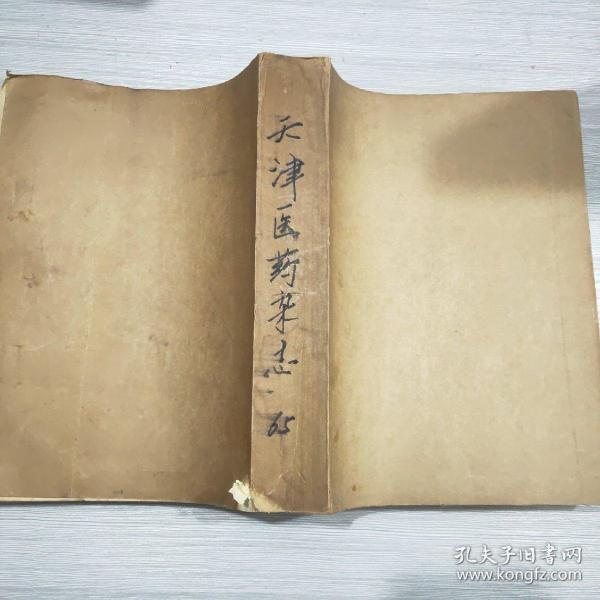 天津医药杂志.65
孔夫子旧书网
www.kongfz.com